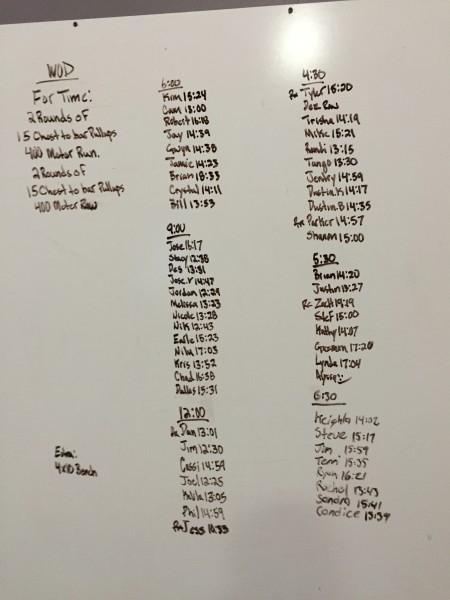 WOD
For Time:
2 Rounds of
15 Chest to bar Pullups
400 Meter Run.
2 Rounds of
15 Chest to bar Pullups
400 Meter Row
Extra:
4x10 Bench
6:00
Kim 15:24
Cam 13:00
Robert 16:18
Jay 14:39
Gwyn 14:38
Jamie 14:23
Brian 18:33
Crystal 14:11
Bill 13:53
9:00
Jose 16:17
Stacy 12:38
Des 13:31
Jose.r 14:47
Jordan 12:29
Melissa 13:23
Nicole 13:28
Nik 12:43
Earle 15:23
Nila 17:03
Kris 13:52
Chad 15:58
Dallas 15:31
12:00
Rx Dan 13:01
Jim 12:30
Cassi 14:59
Joel 12:25
13:05
Phil 14:59
Rx Jess 10:33
4:30
Rx Tyler 15:20
Dez Row
Trisha 14:19
Mike 15:21
Randi 13:15
Tango 13:30
Jentry 14:59
Dustin.K 14:17
Dustin.B 14:35
Rx Parker 14:57
Shawn 15:00
5:30
Brian 14:20
Justin 13:27
Rx Zach 19:19
Stef 15:00
Kathy 14:07
17:20
Lynda 17:04
Alyssa
6:30
Keighla 14:02
Steve 15:17
Jim 15:59
Terri 15:35
Ryan 16:21
Rachel 13:43
Sandra 15:41
Candice 13:39